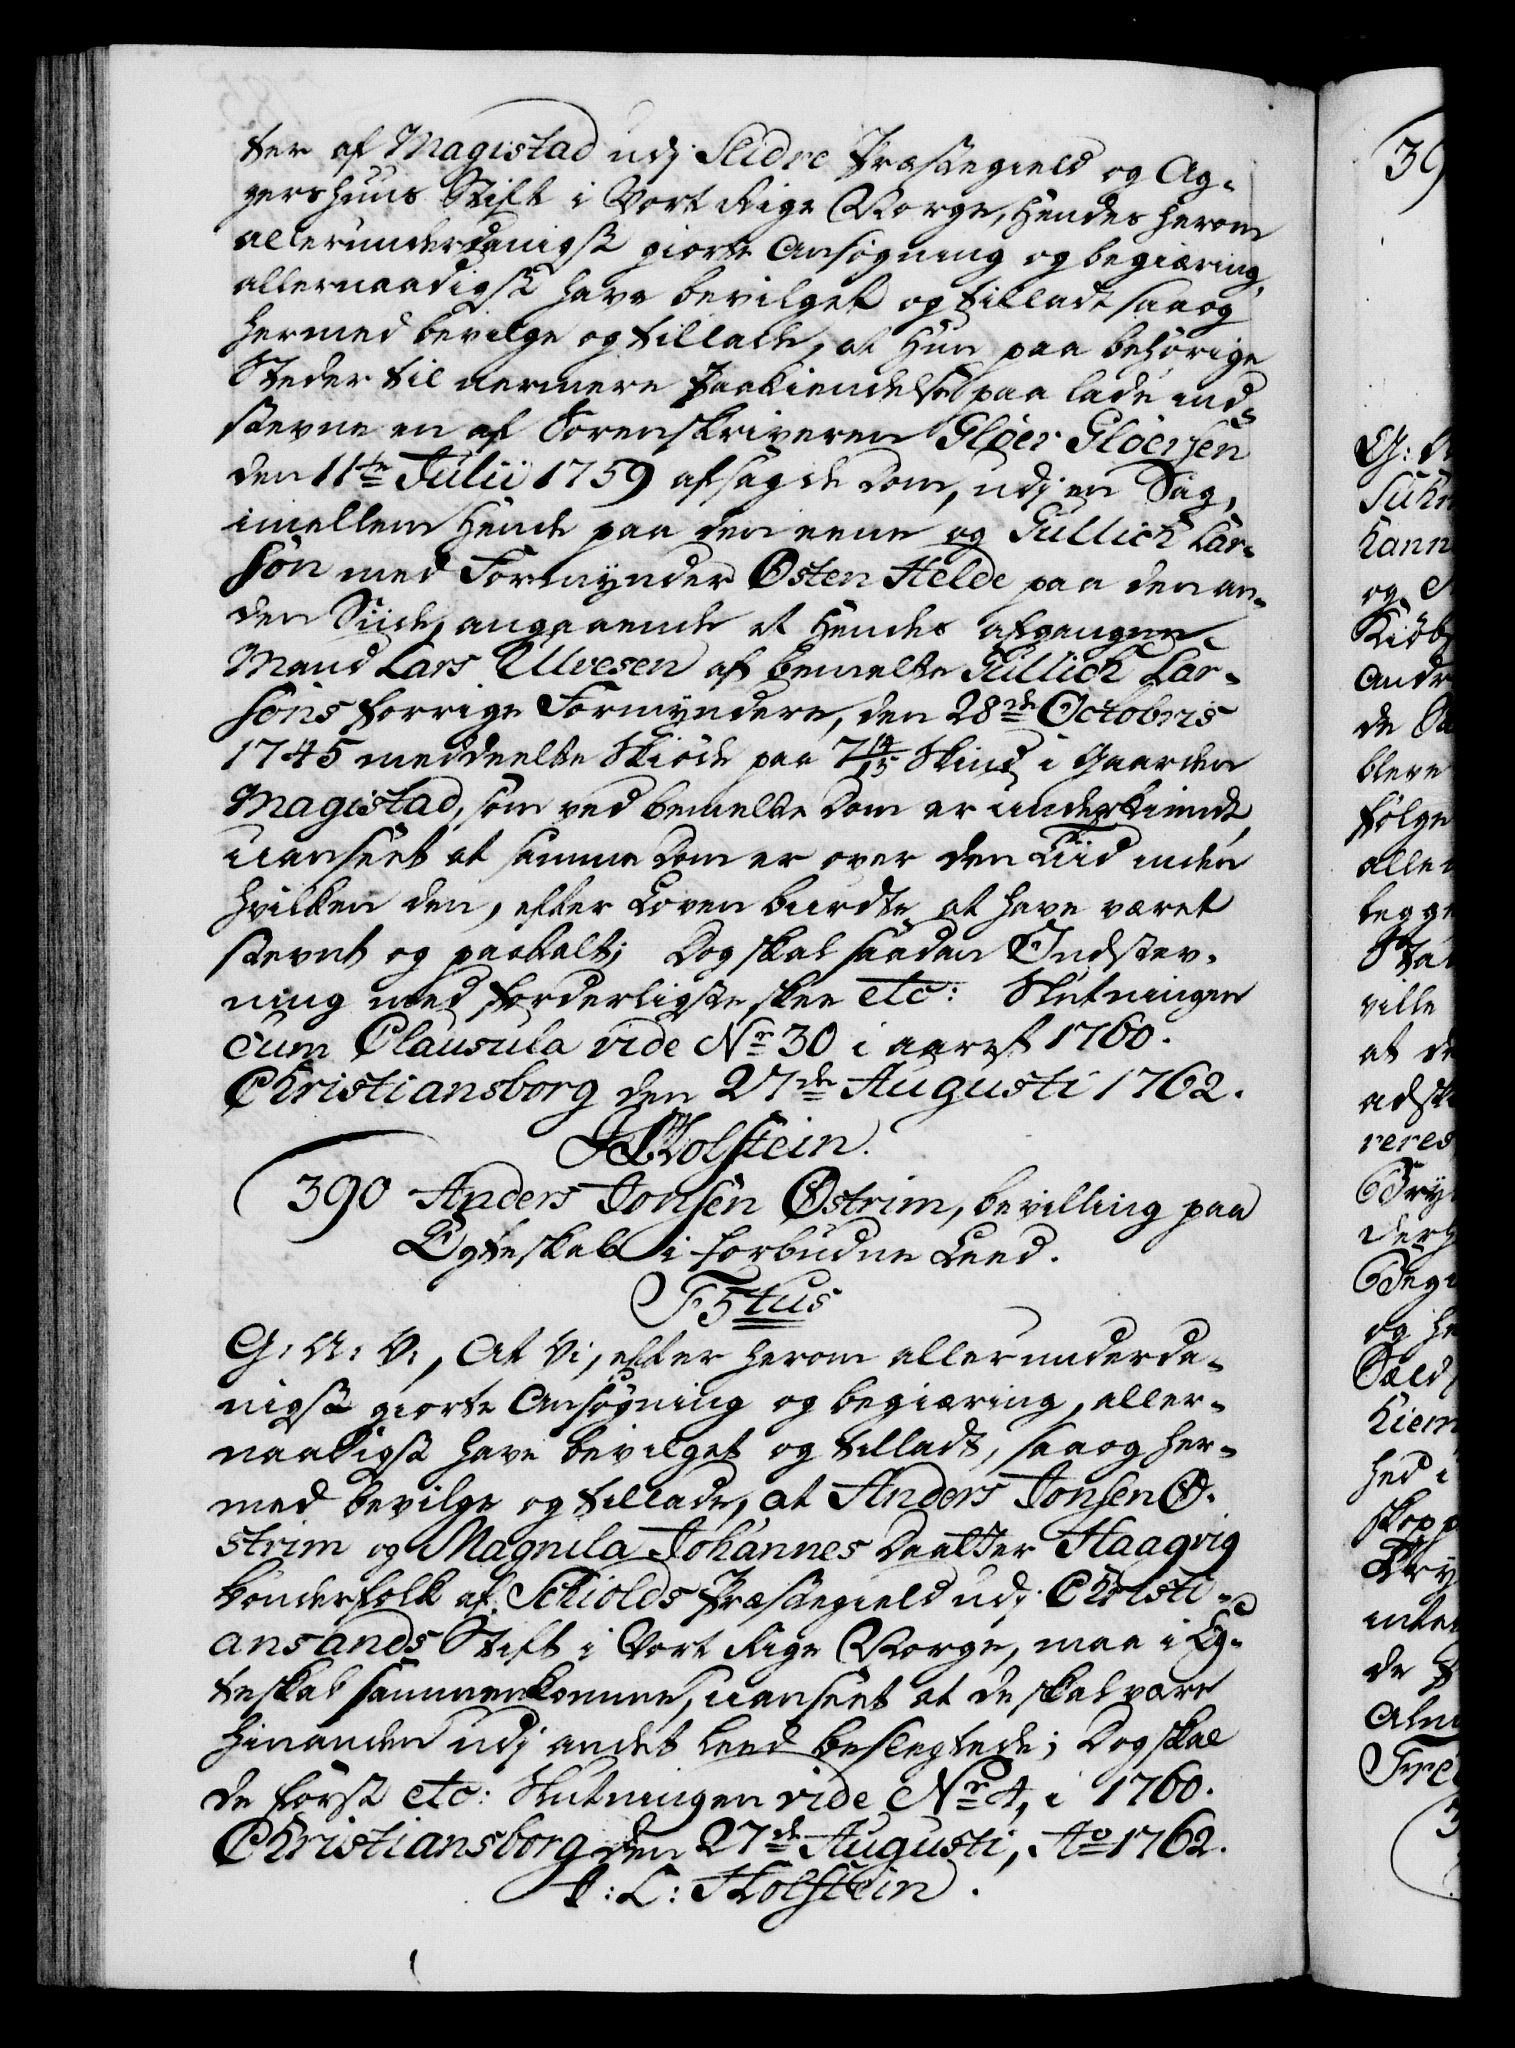 ter af Magistad udj Slidre Præstegield og Ag-
gershuus Stift i Vort Rige Norge, Hendes herom
allerunderdanigst giorte Ansøgning og begiæring,
allernaadigst have bevilget og tilladt saa og
hermed bevilge og tillade, at Hun paa behørige
Steder til nermere Paakiendelse paa lade ind-
stevne en af Sorenskriveren Gløer Gløersen
den 11te Julii 1759 afsagde Dom, udj en Sag,
imellem Hende paa den eene og Gullich Lar-
søn med Formynder Østen Helde paa den an-
den Siide, angaaende et Hendes afgangne
Mand Lars Ulvesen af bemelte Gullich Lar-
søns forrige Formyndere, den 28de Octobris
1745 meddeelte Skiøde paa 7 14/15 Skind i Gaarden
Magistad, som ved bemelte Dom er underkiendt,
uanseet at samme Dom er over den Tiid inden
hvilken den, efter Loven burdte at have været
stevnt og paatalt; Dog skal saadan Indstev-
ning med forderligste skee etc: Slutningen
cum Clausula vide No 30 i aaret 1760.
Christiansborg den 27de Augusti 1762.
JL Holstein.
390 Anders Jonsen Østrim, bevilling paa
Egteskab i forbudne Leed.
F5tus
G: A: V:, At Vi, efter herom allerunderda-
nigst giorte Ansøgning og begiæring, aller-
naadigst have bevilget og tilladt, saa og her-
med bevilge og tillade, at Anders Jonsen Ø-
strim og Magnila Johannes Daatter Haagvig
bønderfolk af Schiolds Præstegield udj Christi-
ansands Stift i Vort Rige Norge, maa i Eg-
teskab sammenkomme, uanseet at de skal være
hinanden udj andet Leed beslegtede; Dog skal
de først etc: Slutningen vide No 4, i 1760.
Christiansborg den 27de Augusti, Ao 1762.
J: L: Holstein.